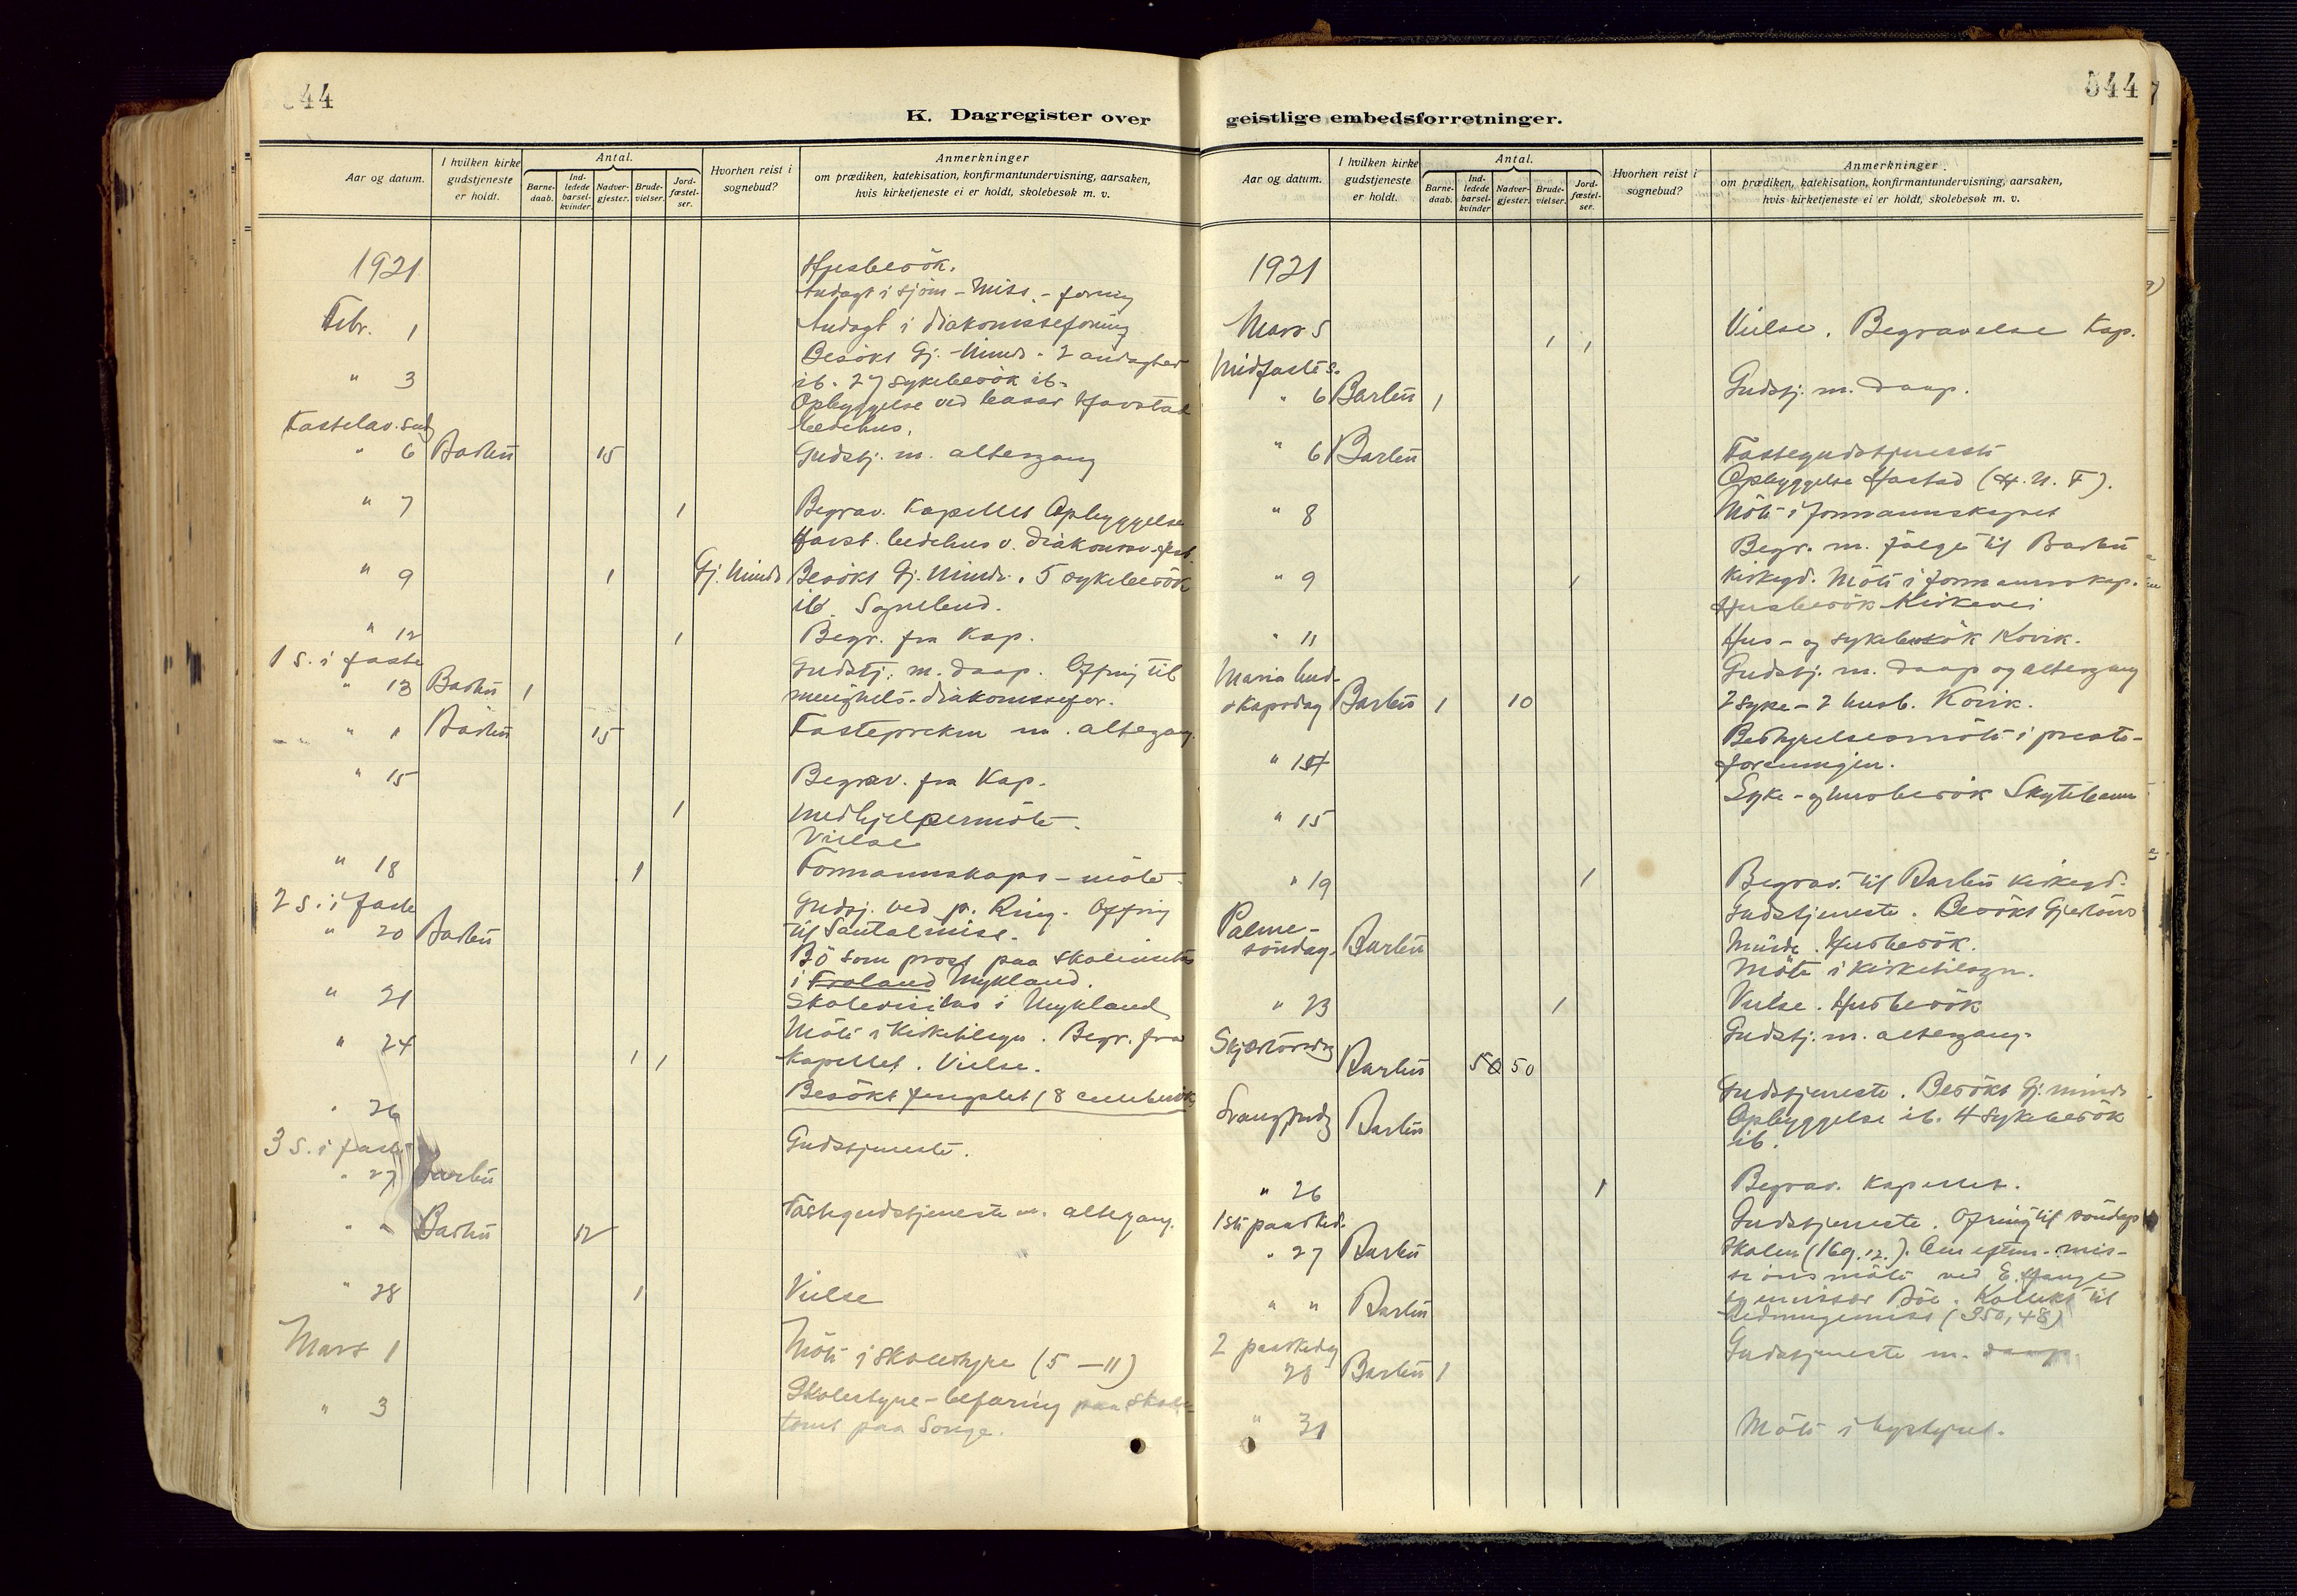 544
K. Dagregister over
Aar og datum.
I hvilken kirke gudstjeneste er holdt.
Antal.
Barne-daab.
Ind-ledede barsel-kvinder.
Nadver-gjester.
Brude-vielser.
Jord-fæstel-ser.
Hvorhen reist i sognebud?
Anmerkninger
om prædiken, katekisation, konfirmantundervisning, aarsaken,
hvis kirketjeneste ei er holdt, skolebesøk m. v.
1921
Husbesök.
Andagt i sjöm-Miss.-forening
Febr. 1
Andagt i diakonisseforening
" 3
Besökt Gj. Minde. 2 andagter
ib. 27 sykebesök ib.
Opbyggelse ved basar Havstad
bedehus.
Fastelav. Sødg
" 6 Barbu 15 Gudstj. m. altergang
" 7 1 Begrav. Kapellet Opbyggelse
Havst. bedehus v. diakonav. fest
" 9 1 Gj. Minde Besökt Gj. Minde. 5 sykebesök
ib. Sognebud.
" 12 1 Begr. fra Kap.
1 S. i faste
" 13 Barbu 1 Gudstj. m. daap. Offring til
menighets-diakonissefor.
" " Barbu 15 Fasteprekn m. altergang.
" 15 1 Begrav. fra Kap.
Medhjelpermöte.
Vielse
" 18 1 Formannskaps-möte.
2 S. i faste
" 20 Barbu
Gudstj. ved p. Ring. Offring
til Santalmiss.
Bö som prost paa skolevisitas
i Froland Mykland.
" 21 Skolevisitas i Mykland
" 24 1 1 Möte i Kirketilsyn. Begr. fra
Kapellet. Vielse.
" 26 Besökt fengslet (8 cellebesök
3 S. i faste
" 27 Barbu Gudstjeneste.
" " Barbu 12 Fastegudstjeneste m. altergang.
" 28 1 Vielse
Mars 1 Möte i skolestyre (5-11)
" 3 Skolestyre-befaring paa skole-
tomt paa Songe.
544
geistlige embedsforretninger.
Aar og datum.
I hvilken kirke gudstjeneste er holdt.
Antal.
Barne-daab.
Ind-ledede barsel-kvinder
Nadver-gjester.
Brude-vielser.
Jord-fæstel-ser.
Hvorhen reist i sognebud?
Anmerkninger
om prædiken, katekisation, konfirmantundervisning, aarsaken,
hvis kirketjeneste ei er holdt, skolebesøk m. v.
1921
Mars 5 1 1 Vielse. Begravelse Kap.
Midfaste s.
" 6 Barbu 1 Gudstj. m. daap.
" 6 Barbu Fastegudstjeneste
Opbyggelse Hastad (H. U. F).
" 8 Möte i formannskapet
Begr. m. fölge til Barbu
" 9 1 kirkegd. Möte i formannskap.
Husbesök Kirkevei
" 11 Hus- og sykebesök Kovik.
Maria bud-
skapsdag Barbu 1 10 Gudstj. m. daap og altergang
2 syke- 2 husb. Kovik.
" 14 Bestyrelsesmöte i preste-
foreningen.
" 15 Syke- og husbesök Skytebanen
" 19 1 Begrav. til Barbu kirkegd.
Palme-
söndag. Barbu Gudstjeneste. Besökt Gjestöns
Minde. Husbesök.
Möte i kirketilsyn.
" 23 1 Vielse. Husbesök
Skjærtorsdg Barbu 50 50 Gudstj. m. altergang.
Langfredg Barbu Gudstjeneste. Besökt Gj. minde
Opbyggelse ib. 4 sykebesök
ib.
" 26 1 Begrav. Kapellet.
1ste paasked.
" 27 Barbu Gudstjeneste. Ofring til söndags
skolen (169.12.). Om efterm. mis-
sionsmöte ved E. Hauge
" " Barbu og emissær Böe. Kollekt til
Hedningemiss (350,48)
2 paaskedg
28 Barbu 1 Gudstjeneste m. daap.
" 31 Möte i bystyret.